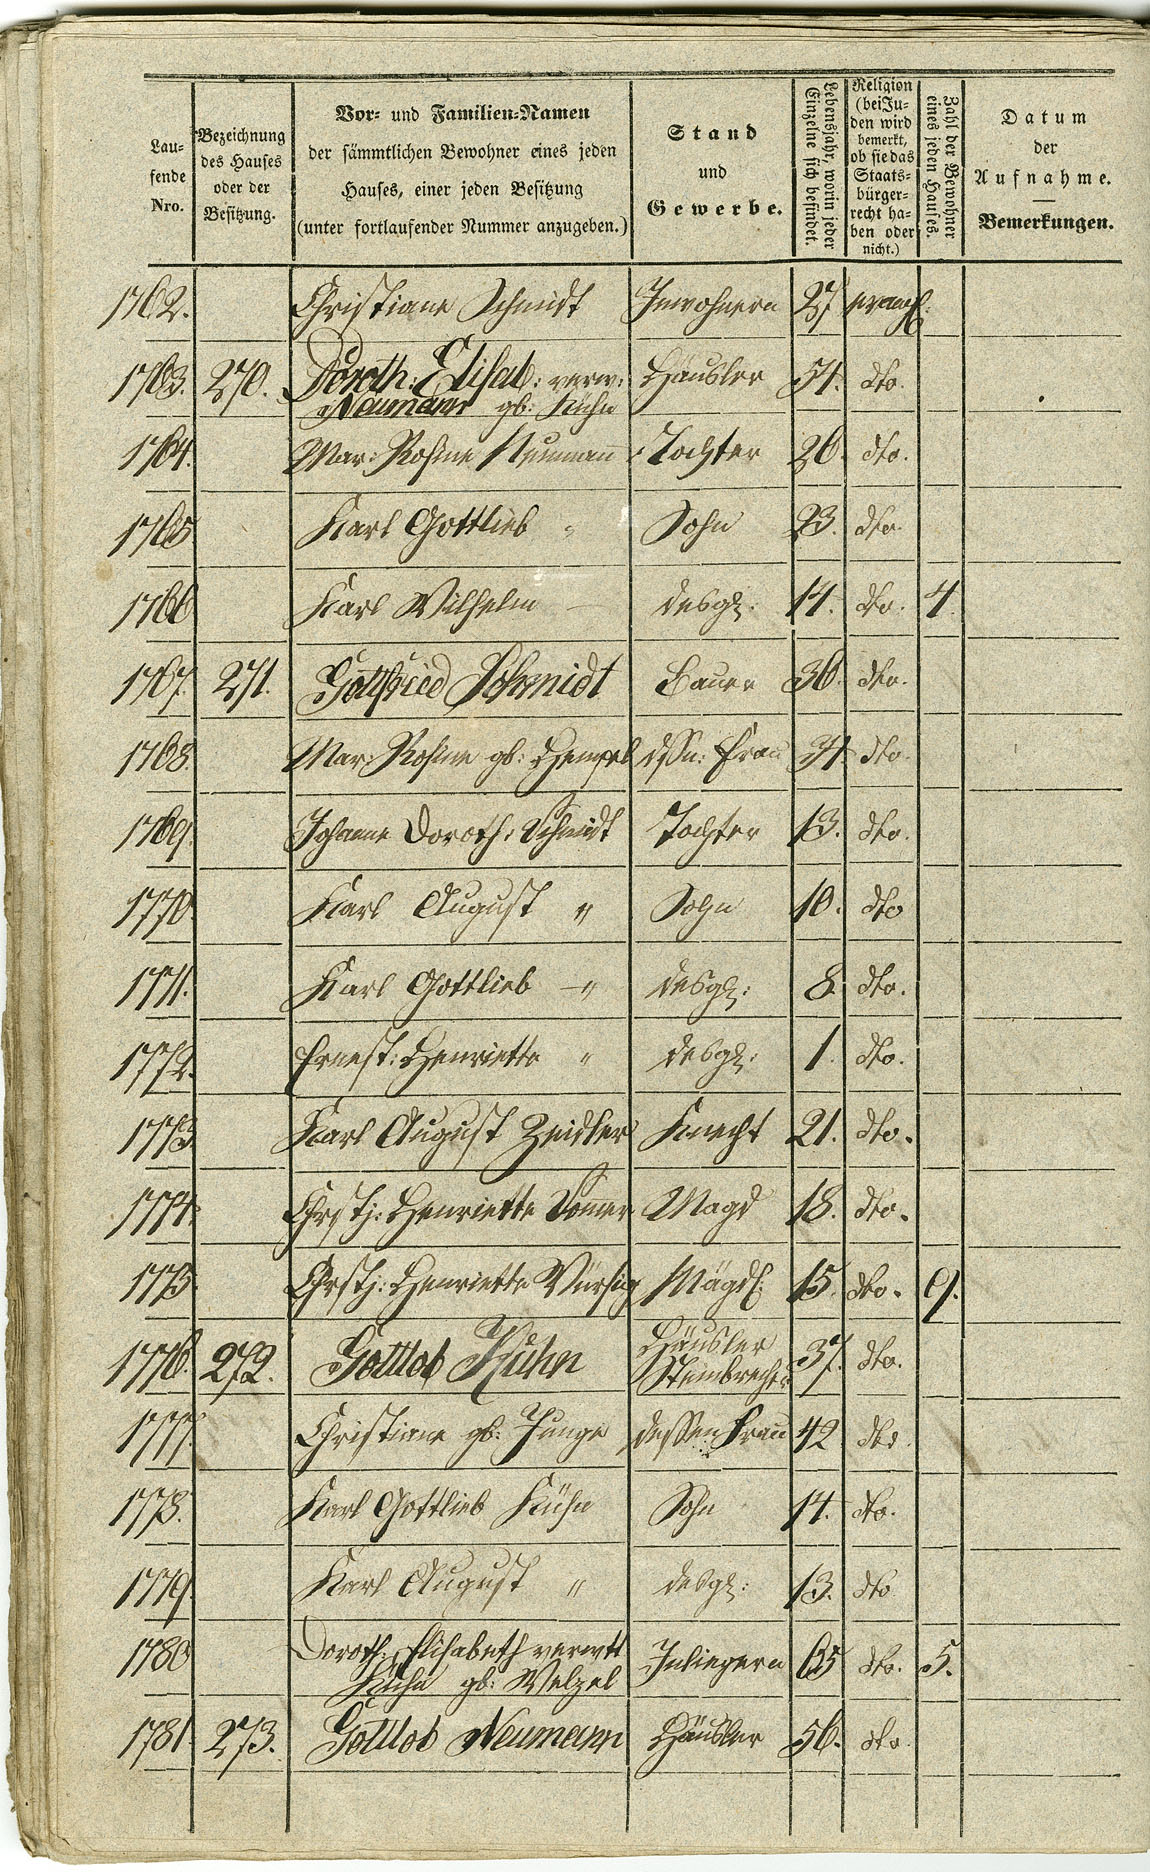 Lau-
fende
Nro.
Bezeichnung
des Hauses
oder der
Besitzung.
Vor- und Familien-Namen
der sämmtlichen Bewohner eines jeden
Hauses, einer jeden Besitzung
(unter fortlaufender Nummer anzugeben.)
Stand
und
Gewerbe.
Lebensjahr, worin jeder
Einzelne sich befindet.
Religion
(bei Ju-
den wird
bemerkt,
ob sie das
Staats-
bürger-
recht ha-
ben oder
nicht.)
Zahl der Bewohner
eines jeden Hauses.
Datum
der
Aufnahme.
Bemerkungen.
1762. Christiane Schmidt Inwohnern 27. evangl:
1763. 270. Doroth: Elisab: verw: Häusler 54. dto.
Neumann gb: Kühn
1764. Mar: Rosine Neumann Tochter 26. dto.
1765 Karl Gottlieb " Sohn 23. dto.
1766 Karl Wilhelm — desgl: 14. dto. 4.
1767. 271. Gottfried Schmidt Bauer 36. dto.
1768. Mar: Rosine gb: Hempel dssn: Frau 34. dto.
1769. Johanne Doroth: Schmidt Tochter 13. dto.
1770. Karl August " Sohn 10. dto
1771. Karl Gottlieb —" desgl: 8. dto.
1772. Ernest: Henriette " desgl: 1. dto.
1773 Karl August Zeidler Knecht 21. dto.
1774. Chrstj: Henriette Sommer Magd 18. dto.
1775. Chrstj: Henriette Würsig Mägdl: 15. dto. 9.
1776. 272. Gottlob Kühn Häusler 37. dto.
Steinbrecher
1777. Christiane gb: Junge dessen Frau 42 dto.
1778. Karl Gottlieb Kühn Sohn 14. dto.
1779. Karl August " desgl: 13. dto
1780 Doroth: Elisabeth verwtt Inliegern 65 dto. 5.
Kühn gb: Welzel
1781. 273. Gottlob Neumann Häusler 56. dto.